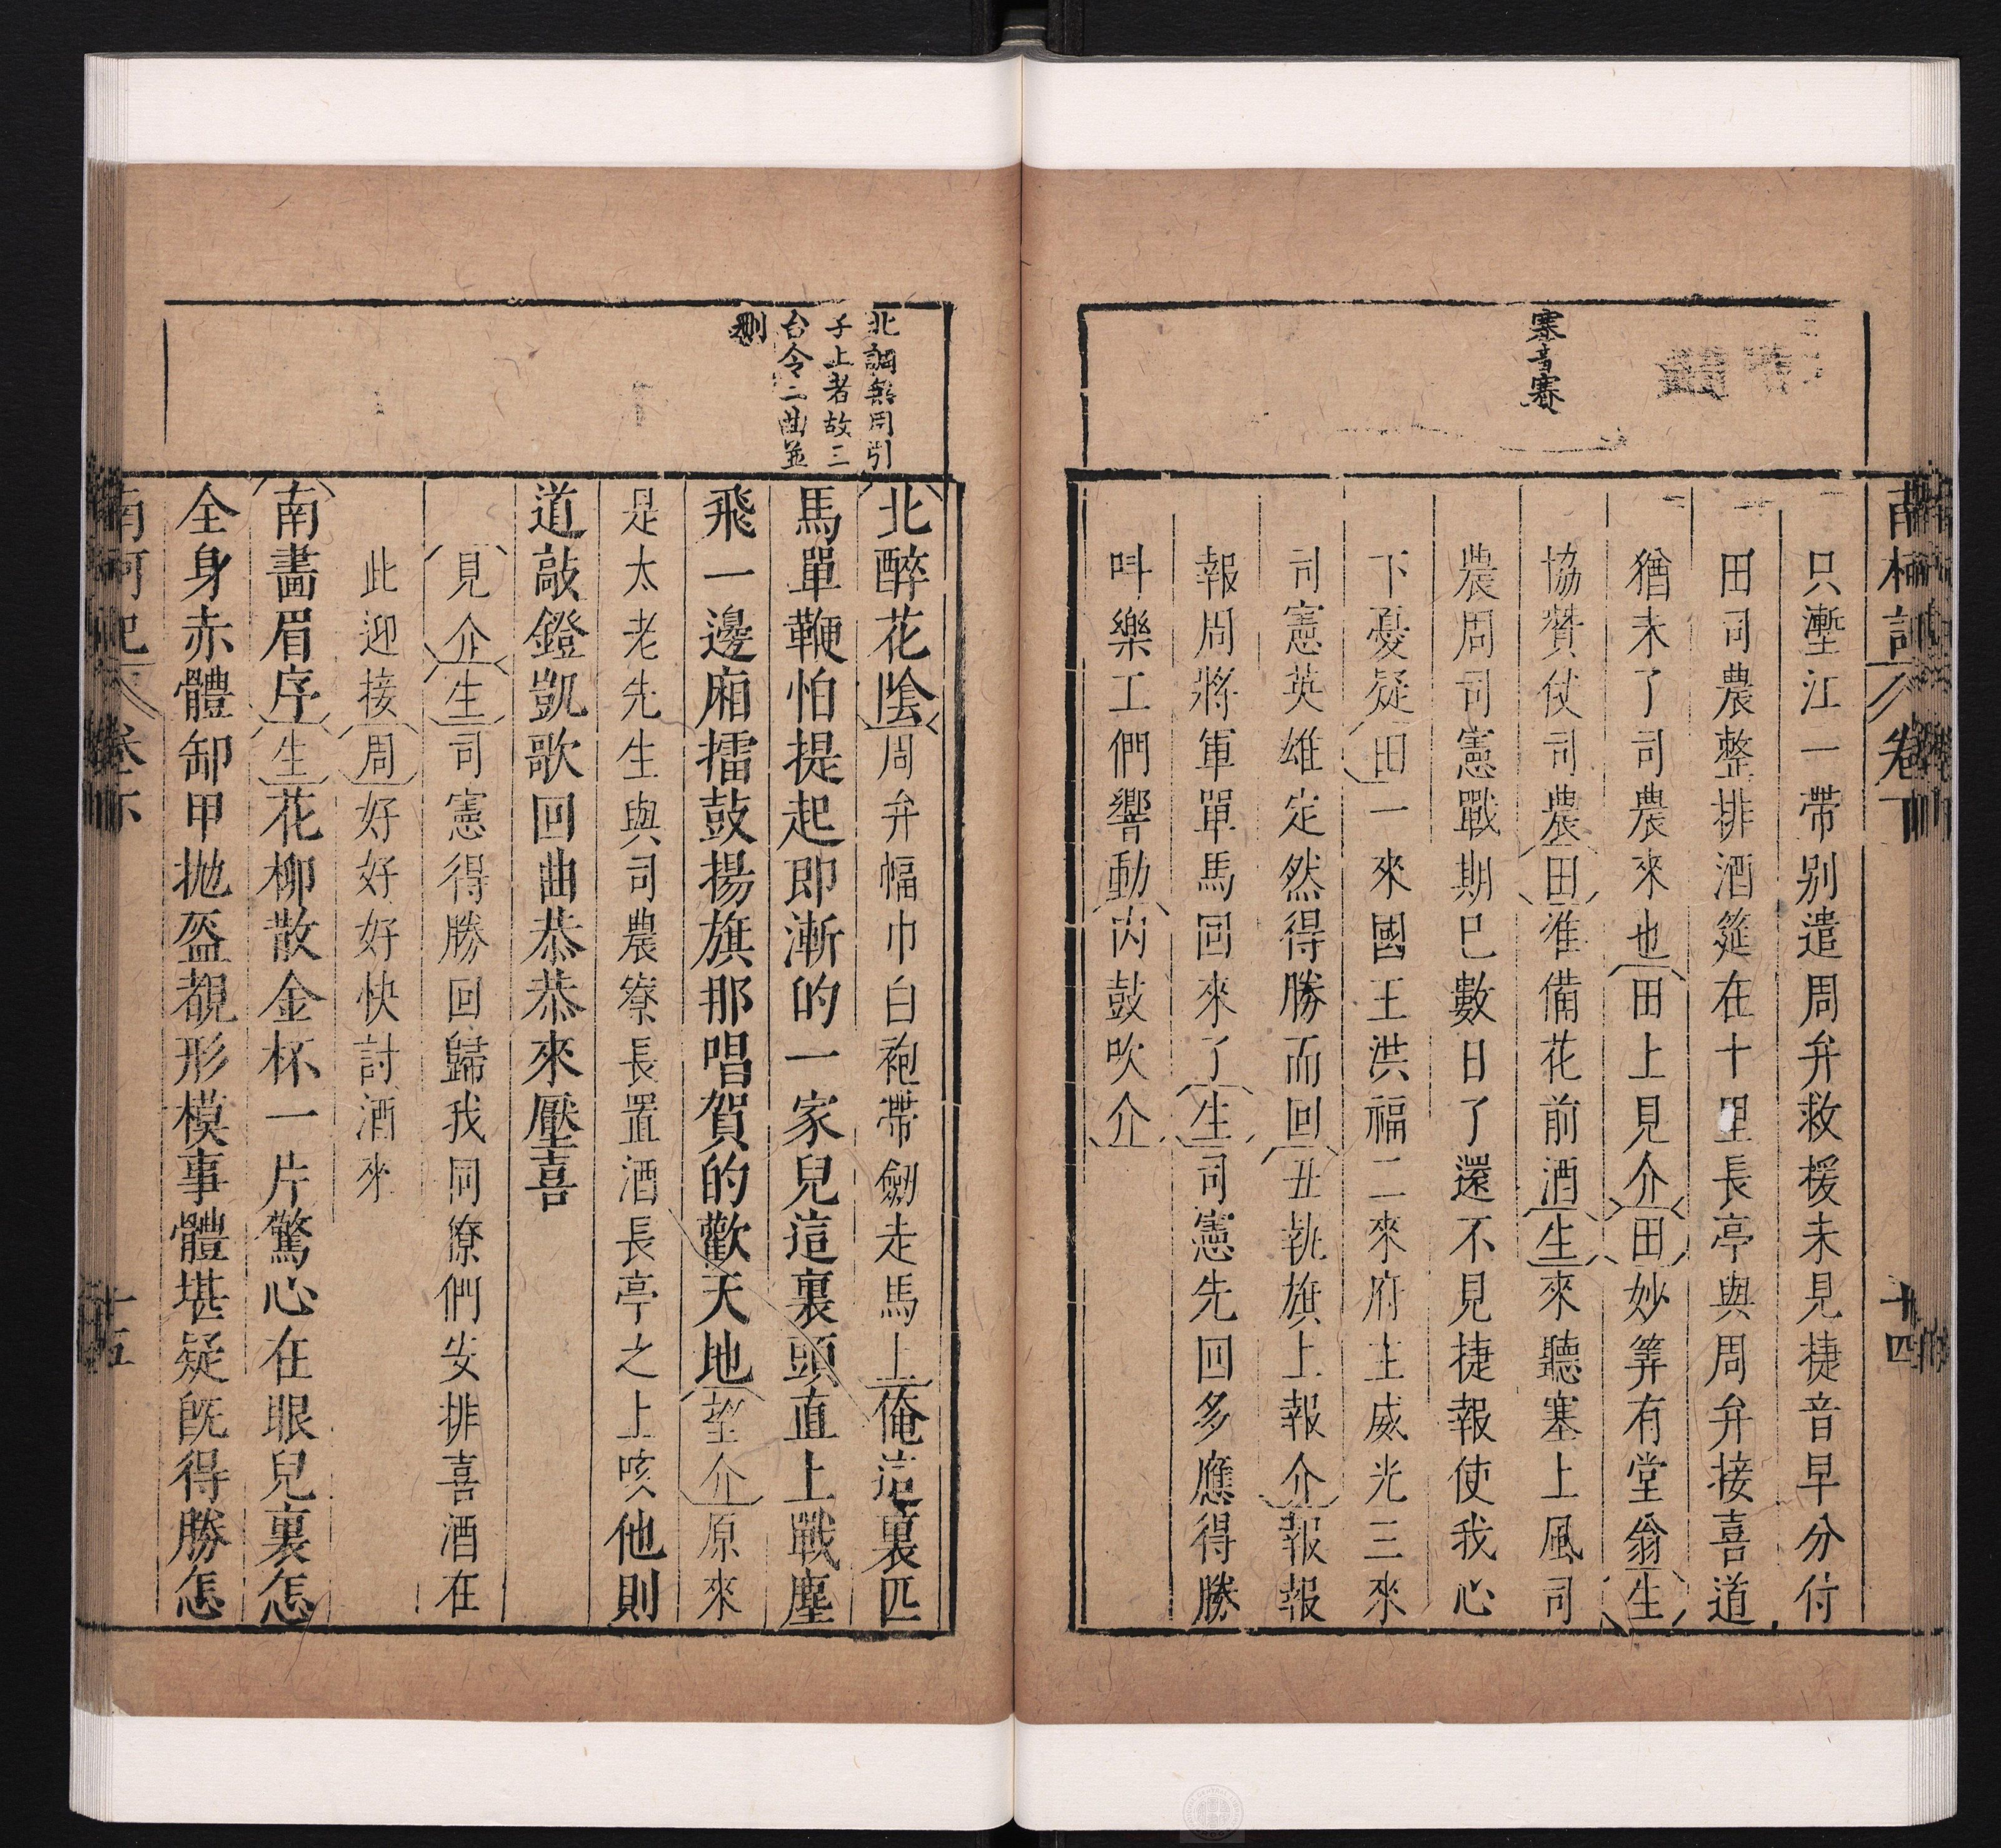 南柯記 卷下 十四
塞音賽
只壍江一帶别遣周弁救援未見捷音早分付
田司農整排酒筵在十里長亭與周弁接喜道
猶未了司農來也田上見介田妙筭有堂翁生
協贊仗司農田准備花前酒生來聽塞上風司
農周司憲戰期巳數日了還不見捷報使我心
下憂疑田一來國王洪福二來府主威光三來
司憲英雄定然得勝而回丑執旗上報介報報
報周將軍單馬回來了生司憲先回多應得勝
呌樂工們響動内鼓吹介
北調無用引
子上者故三
台令二曲並
刪
北醉花陰周弁幅巾白袍帶劒走馬上俺這裏匹
馬單鞭怕提起即漸的一家兒這裏頭直上戰塵
飛一邊廂擂鼓揚旗那唱賀的歡天地望介原來
是太老先生與司農寮長置酒長亭之上咳他則
道敲鐙凱歌回曲恭恭來壓喜
見介生司憲得勝回歸我同僚們安排喜酒在
此迎接周好好好快討酒來
南畵眉序生花柳散金杯一片驚心在眼兒裏怎
全身赤體卸甲抛盔覩形模事體堪疑旣得勝怎
南柯記 卷下 十五